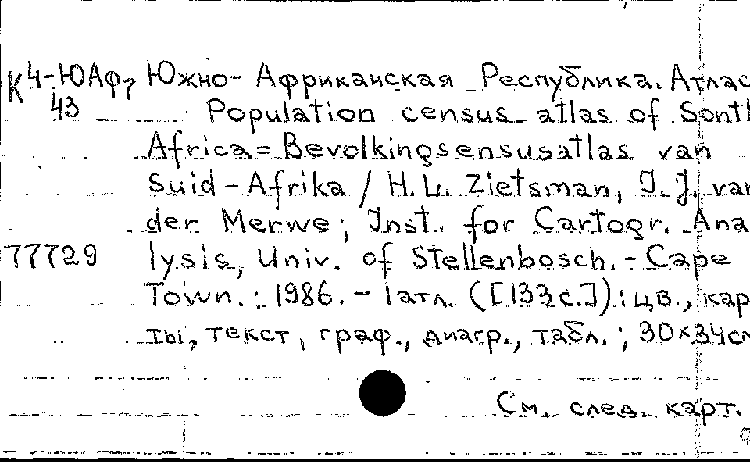 К4-ЮАФ, Южно-Африканская Республика. Атлас
43 Population census atlas of South
Africa = Bevolkingsensusatlas van
Suid-Afrika / H.L. Zietsman, I.J. van
der Merwe; Inst. for Cartogr. Ana
77729 lysis, Univ. of Stellenbosch. - Cape
Town.: 1986. - 1 атл. ([133 с.]): цв., кар
ты, текст, граф., диагр., табл.; 30×34см
См. след. карт.